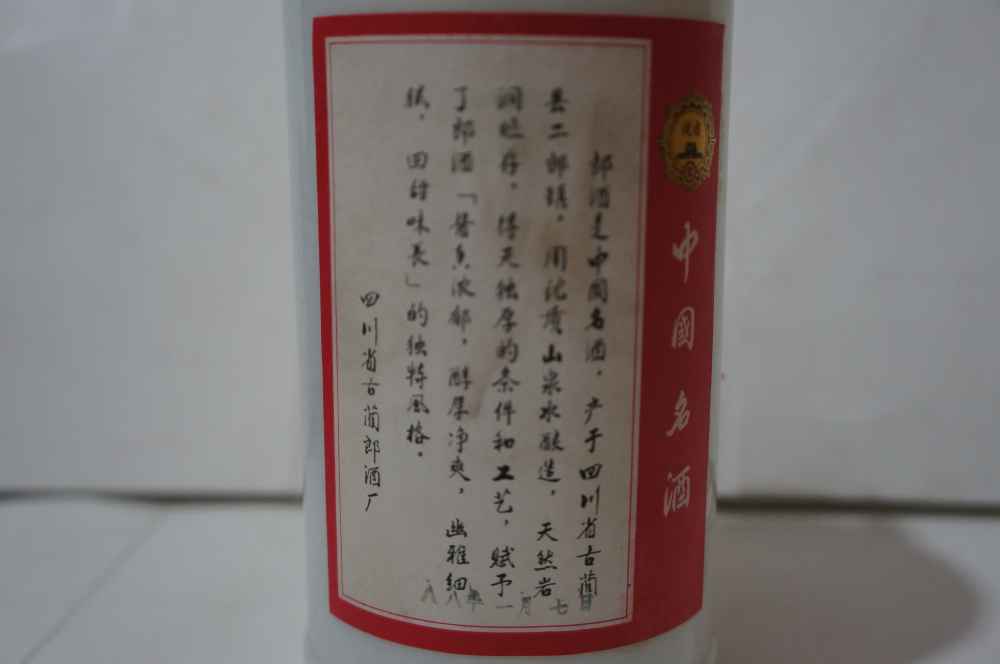 郎酒是中国名酒，产于四川省古蔺
县二郎镇，用优质山泉水酿造，天然岩
洞贮存，得天独厚的条件和工艺，赋予
了郎酒「酱香浓郁，醇厚净爽，幽雅细
腻，回甜味长」的独特风格．
四川省古蔺郎酒厂
八八年一月七日
中國名酒